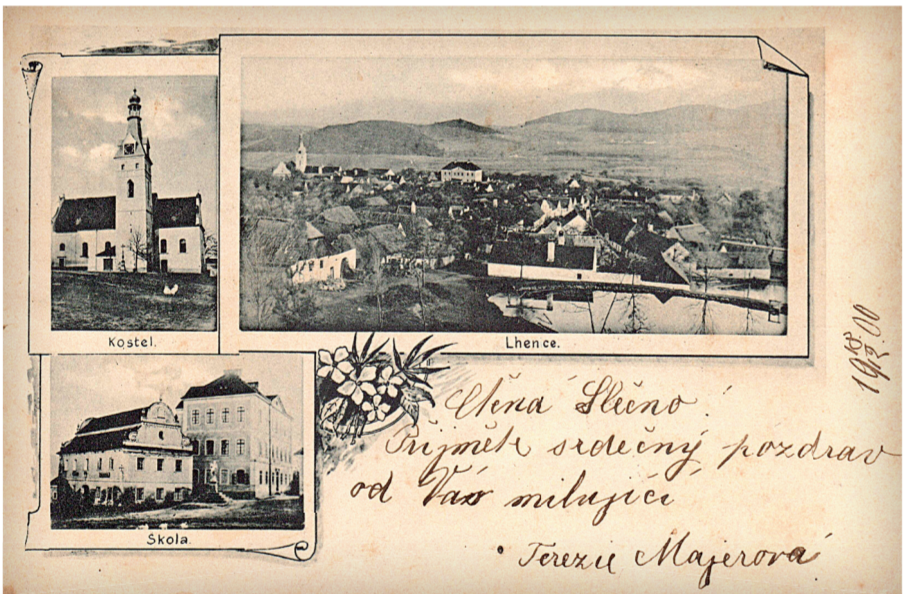 Kostel.
Lhence.
Skola.
Ctěná Slečno!
Přijměte srdečný pozdrav
od Vás milující
Terezie Majerová